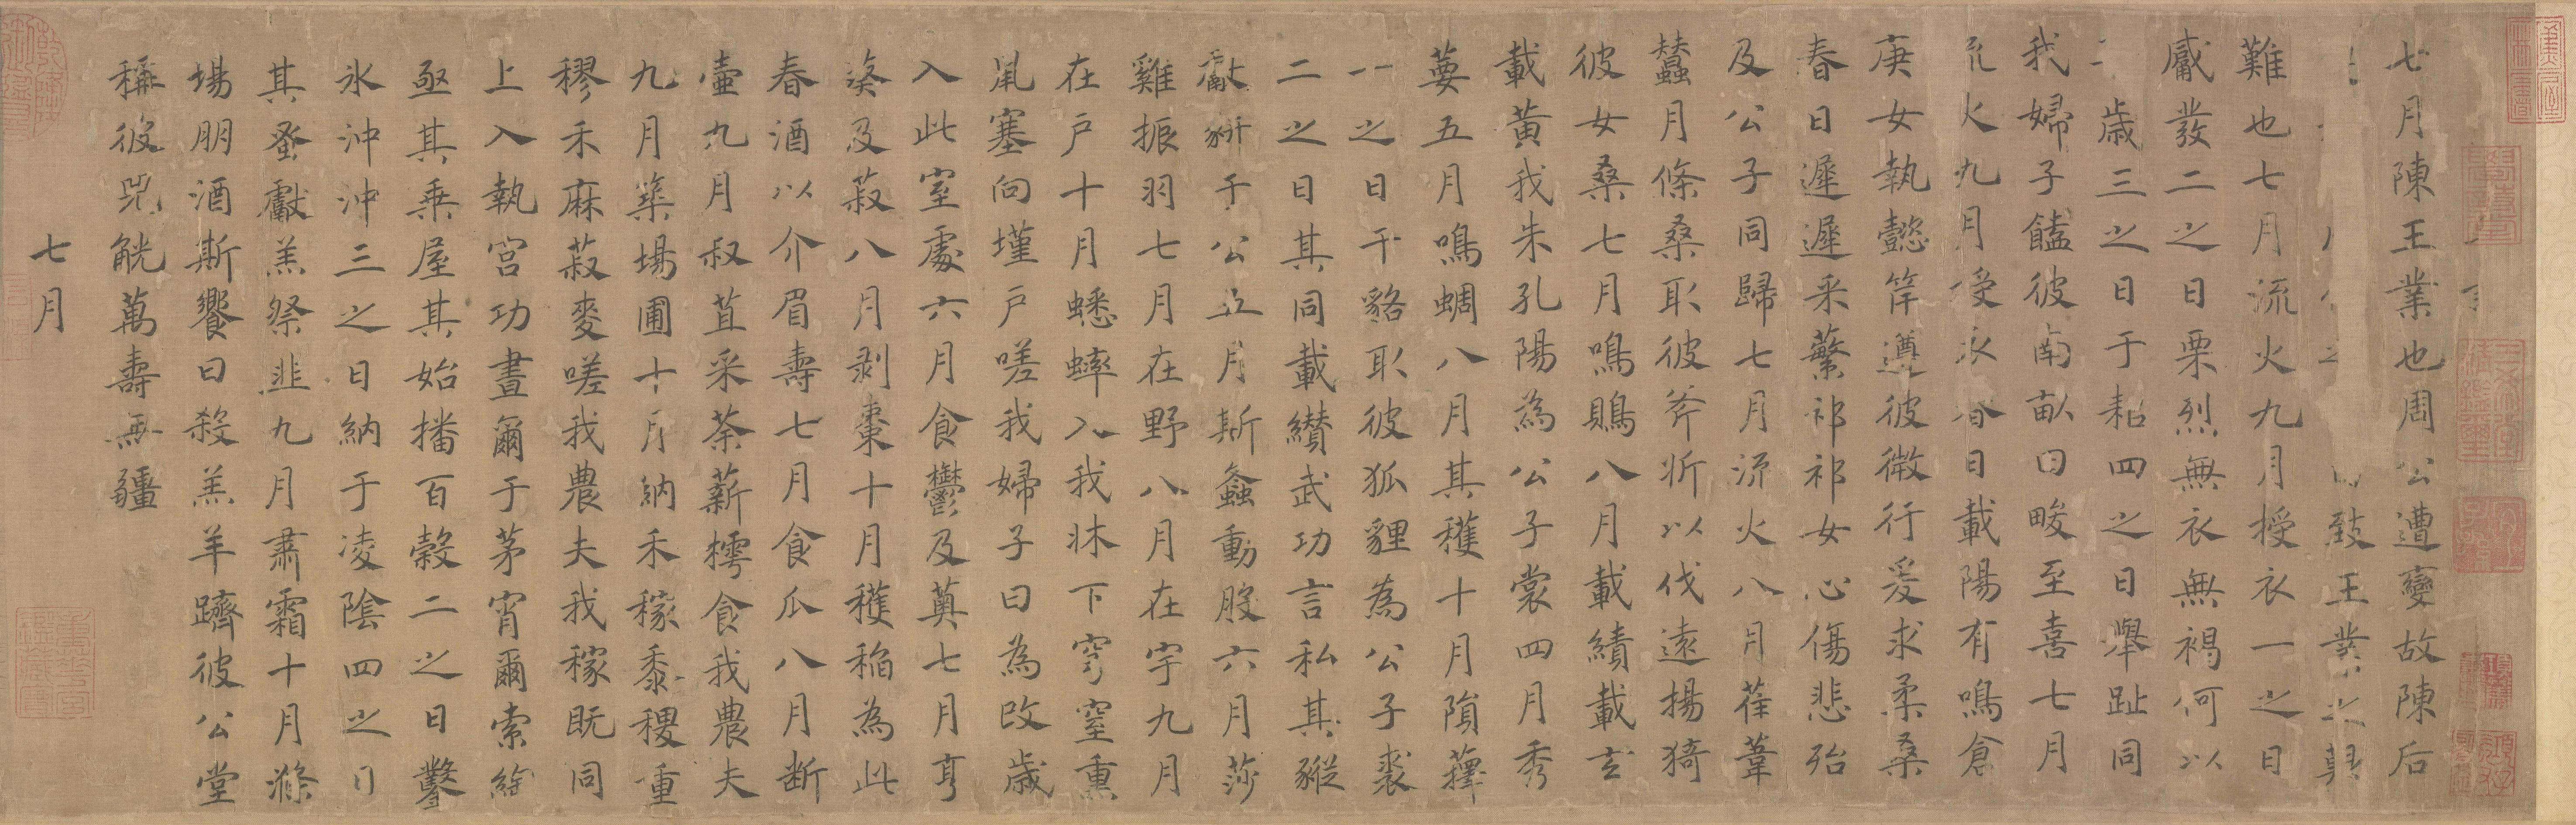 七月陳王業也周公遭變故陳后
致王業之艱
難也七月流火九月授衣一之日
觱發二之日栗烈無衣無褐何以
歲三之日于耜四之日舉趾同
我婦子饁彼南畝田畯至喜七月
流火九月受衣春日載陽有鳴倉
庚女執懿筐遵彼微行爰求柔桑
春日遲遲采蘩祁祁女心傷悲殆
及公子同歸七月流火八月萑葦
蠶月條桑取彼斧斨以伐遠揚猗
彼女桑七月鳴鵙八月載績載玄
載黃我朱孔陽為公子裳四月秀
葽五月鳴蜩八月其穫十月隕蘀
一之日于貉取彼狐貍為公子裘
二之日其同載纘武功言私其豵
獻豜于公五月斯螽動股六月莎
雞振羽七月在野八月在宇九月
在戶十月蟋蟀入我牀下穹窒熏
鼠塞向墐戶嗟我婦子曰為改歲
入此室處六月食鬱及薁七月亨
葵及菽八月剥棗十月穫稻為此
春酒以介眉壽七月食瓜八月斷
壺九月叔苴采荼薪樗食我農夫
九月築場圃十月納禾稼黍稷重
穋禾麻菽麥嗟我農夫我稼既同
上入執宮功晝爾于茅宵爾索綯
亟其乘屋其始播百穀二之日鑿
冰沖沖三之日納于凌陰四之日
其蚤獻羔祭韭九月肅霜十月滌
場朋酒斯饗曰殺羔羊躋彼公堂
稱彼兕觥萬壽無疆
七月